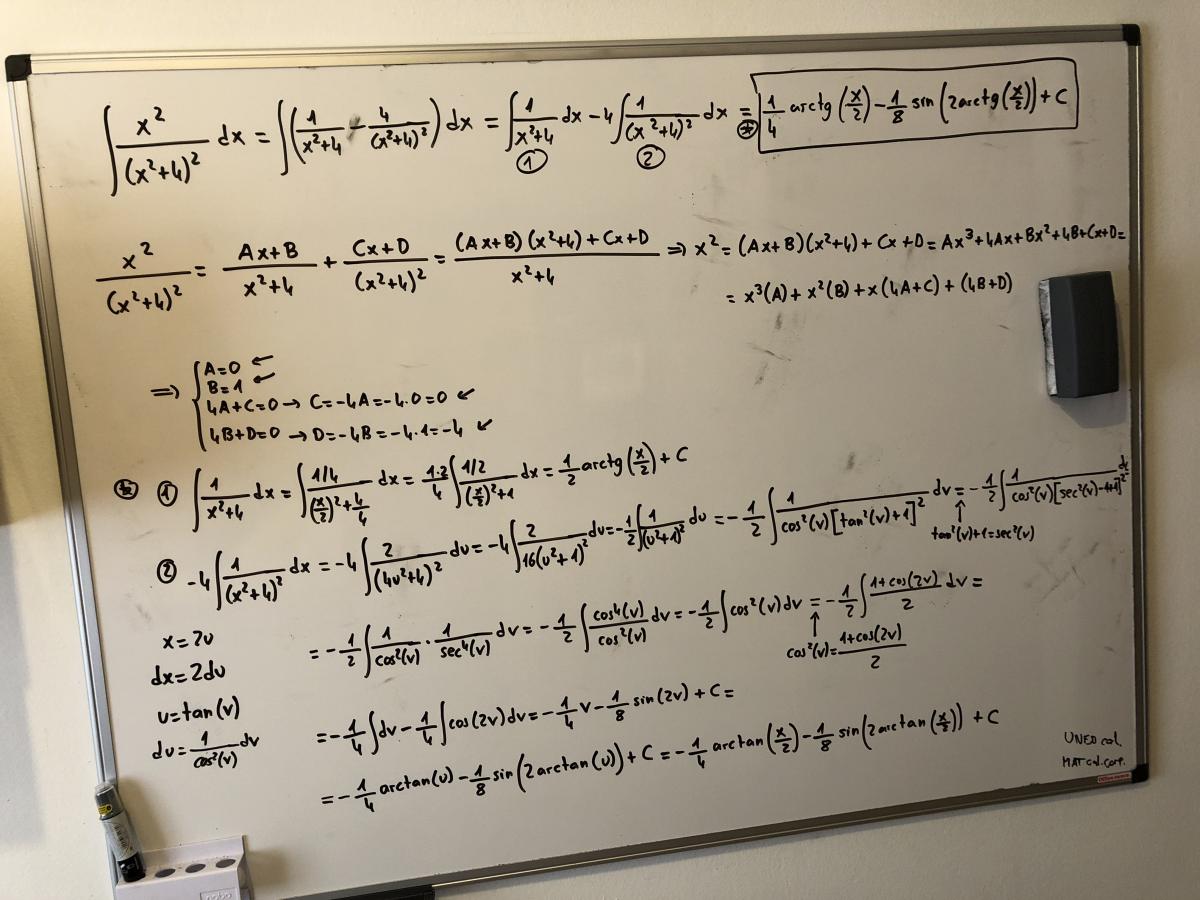 ∫ x²/(x²+4)² dx = ∫(1/(x²+4) - 4/(x²+4)²) dx = ∫ 1/(x²+4) dx - 4∫ 1/(x²+4)² dx = 1/4 arctg(x/2) - 1/8 sin(2arctg(x/2)) + C
① ② ⊛
x²/(x²+4)² = (Ax+B)/(x²+4) + (Cx+D)/(x²+4)² = ((Ax+B)(x²+4)+Cx+D)/(x²+4) ⇒ x² = (Ax+B)(x²+4)+Cx+D = Ax³+4Ax+Bx²+4B+Cx+D=
= x³(A)+x²(B)+x(4A+C)+(4B+D)
⇒ { A=0 ←
B=1 ←
4A+C=0 → C=-4A=-4·0=0 ↙
4B+D=0 → D=-4B=-4·1=-4 ↙
⊛ ① ∫ 1/(x²+4) dx = ∫ (1/4)/((x/2)²+4/4) dx = (1·2)/4 ∫ (1/2)/((x/2)²+1) dx = 1/2 arctg(x/2) + C
② -4∫ 1/(x²+4)² dx = -4∫ 2/(4u²+4)² du = -4∫ 2/(16(u²+1)²) du = -1/2 ∫ 1/(u²+1)² du = -1/2 ∫ 1/(cos²(v)[tan²(v)+1]²) dv = -1/2 ∫ 1/(cos²(v)[sec²(v)-1+1]²) dv
↑ tan²(v)+1=sec²(v)
x=2u
dx=2du
u=tan(v)
du = 1/cos²(v) dv
= -1/2 ∫ 1/cos²(v) · 1/sec⁴(v) dv = -1/2 ∫ cos⁴(v)/cos²(v) dv = -1/2 ∫ cos²(v) dv = -1/2 ∫ (1+cos(2v))/2 dv =
↑ cos²(v) = (1+cos(2v))/2
= -1/4 ∫ dv - 1/4 ∫ cos(2v) dv = -1/4 v - 1/8 sin(2v) + C =
= -1/4 arctan(u) - 1/8 sin(2arctan(u)) + C = -1/4 arctan(x/2) - 1/8 sin(2arctan(x/2)) + C
UNED cal.
MAT cal. corp.